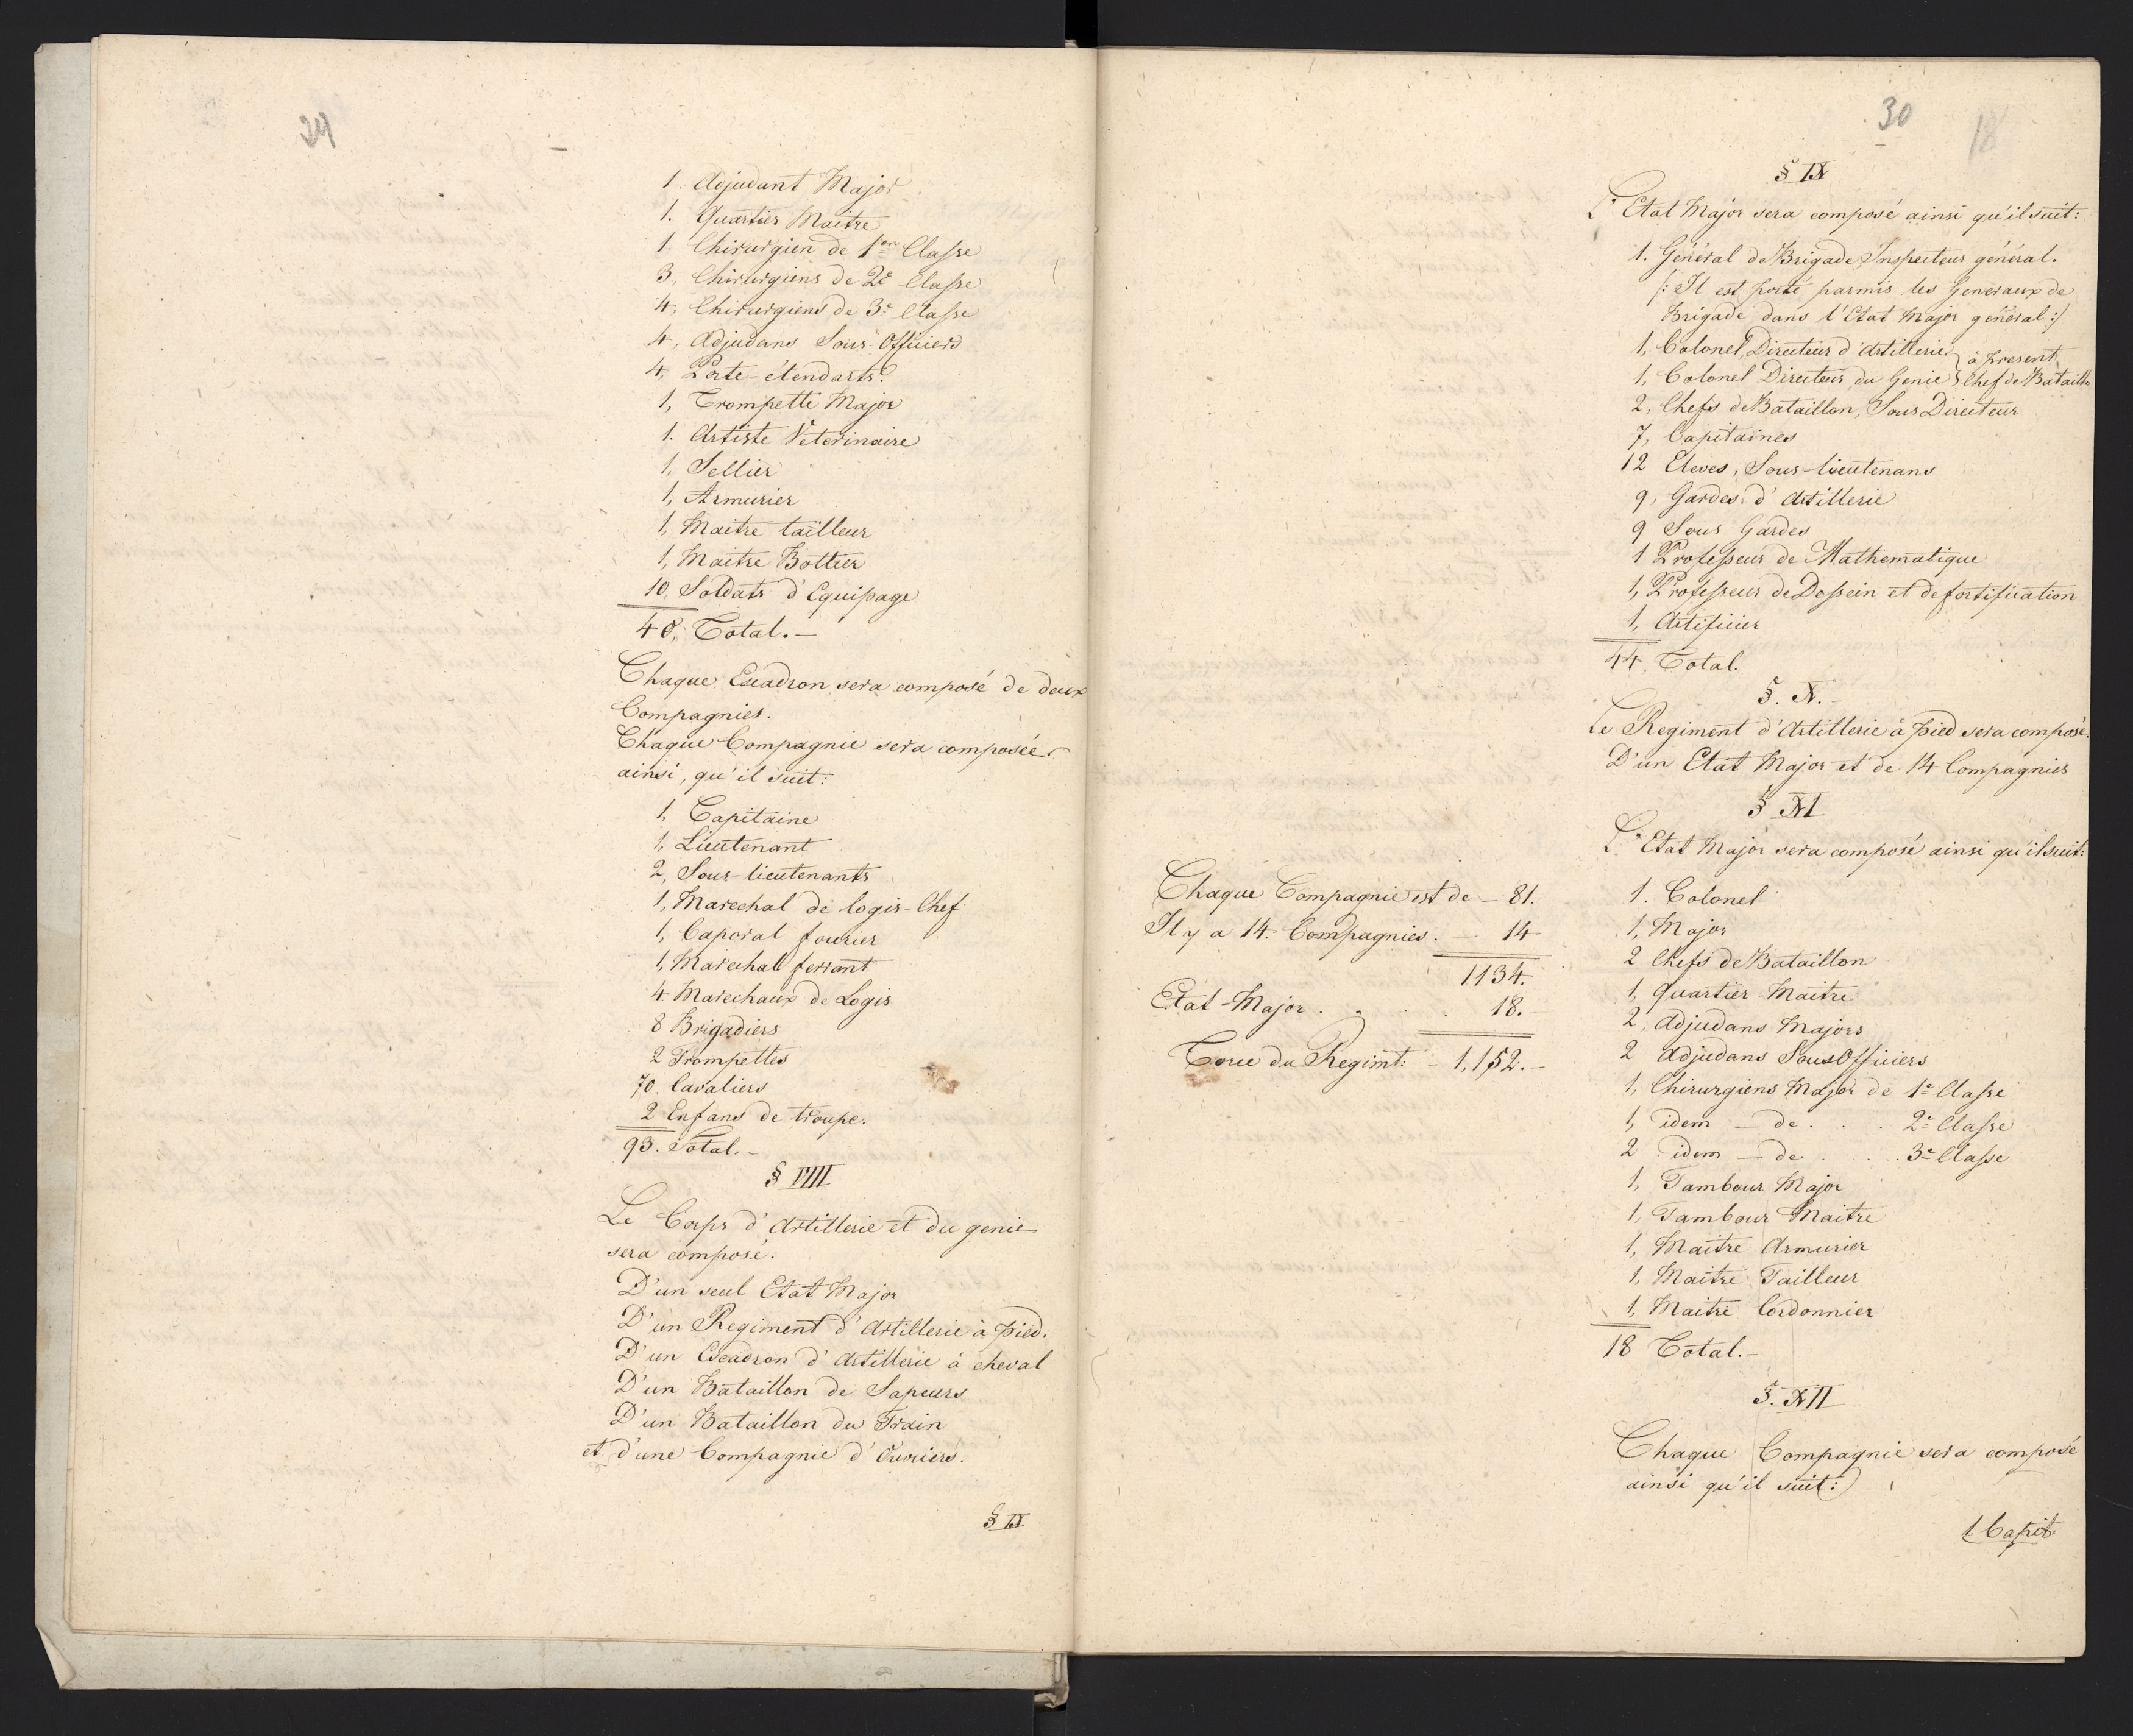 29
1. Adjudant Major
1. Quartier Maitre
1. Chirurgien de 1er Classe
3, Chirurgiens de 2e Classe
4, Chirurgiens de 3e Classe
4, Adjudans Sous-Officiers
4, Porte-étendarts.
1, Trompette Major
1. Artiste Veterinaire
1, Sellier
1, Armurier
1, Maitre tailleur
1, Maitre Bottier
10, Soldats d'Equipage
40, Total.—
Chaque Escadron sera composé de deux
Compagnies.
Chaque Compagnie sera composée
ainsi, qu'il suit:
1, Capitaine
1, Lieutenant
2, Sous-lieutenants
1, Marechal de logis-Chef
1, Caporal fourier
1, Marechal ferrant
4 Marechaux de Logis
8 Brigadiers
2 Trompettes
70, Cavaliers
2 Enfans de troupe.
93. Total.—
§ VIII
Le Corps d'Artillerie et du genie
sera composé:
D'un seul Etat Major
D'un Regiment d'Artillerie à pied.
D'un Escadron d'Artillerie à cheval
D'un Bataillon de Sapeurs
D'un Bataillon du Train
et d'une Compagnie d'Ouvriers.
§ IX
30 18
Chaque Compagnie est de — 81.
Il y a 14. Compagnies. — 14
1134.
Etat-Major . . . . 18.—
Force du Regimt: — 1,152.—
§ IX
L'Etat Major sera composé ainsi qu'il suit:
1. Général de Brigade, Inspecteur général.
/: Il est porté parmis les Generaux de
Brigade dans l'Etat Major général :/
1, Colonel, Directeur d'Artillerie } à present
1, Colonel Directeur du Genie } Chef de Bataillon
2, Chefs de Bataillon, Sous Directeur
7, Capitaines
12 Eleves, Sous-lieutenans
9, Gardes d'Artillerie
9 Sous Gardes
1 Professeur de Mathematique
1, Professeur de Dessein et de fortification
1, Artificier
44. Total.
§. X.
Le Regiment d'Artillerie à pied sera composé:
D'un Etat Major et de 14 Compagnies
§ XI
L'Etat Major sera composé ainsi qu'il suit:
1. Colonel
1, Major
2 Chefs de Bataillon
1, Quartier Maitre
2, Adjudans Majors
2 Adjudans Sous Officiers
1, Chirurgiens Major de 1e Classe
1, idem — de . . . 2e Classe
2 idem — de . . . 3e Classe
1, Tambour Major
1, Tambour Maitre
1, Maitre Armurier
1, Maitre Tailleur
1, Maitre Cordonnier
18 Total.—
§. XII
Chaque Compagnie sera composé
ainsi qu'il suit:
1 Capit: